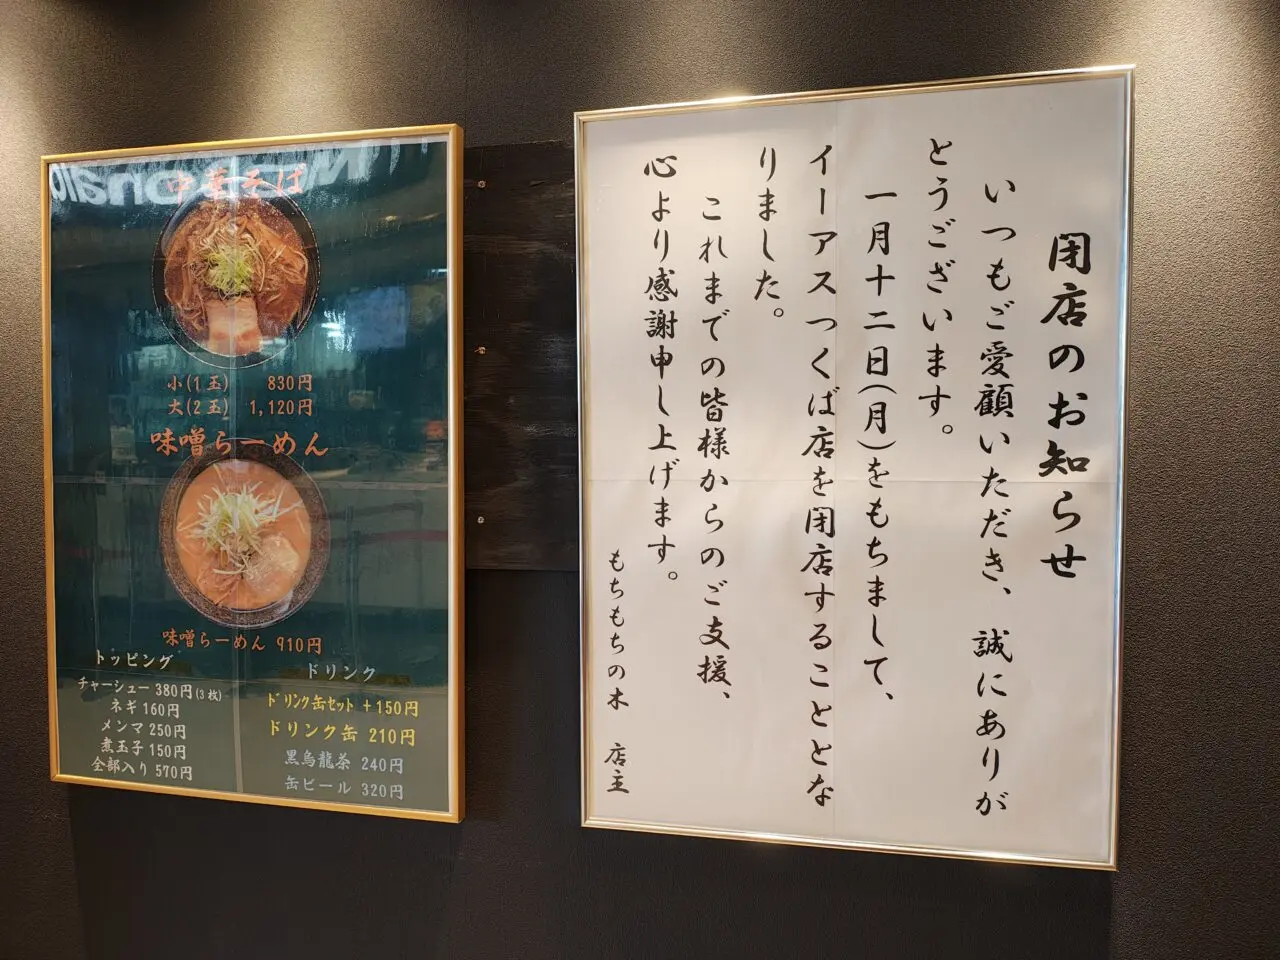 中華そば
小(1玉) 830円
大(2玉) 1,120円
味噌らーめん
味噌らーめん 910円
トッピング
チャーシュー 380円(3枚)
ネギ 160円
メンマ 250円
煮玉子 150円
全部入り 570円
ドリンク
ドリンク缶セット +150円
ドリンク缶 210円
黒烏龍茶 240円
缶ビール 320円
閉店のお知らせ
いつもご愛顧いただき、誠にありが
とうございます。
一月十二日(月)をもちまして、
イーアスつくば店を閉店することとな
りました。
これまでの皆様からのご支援、
心より感謝申し上げます。
もちもちの木 店主